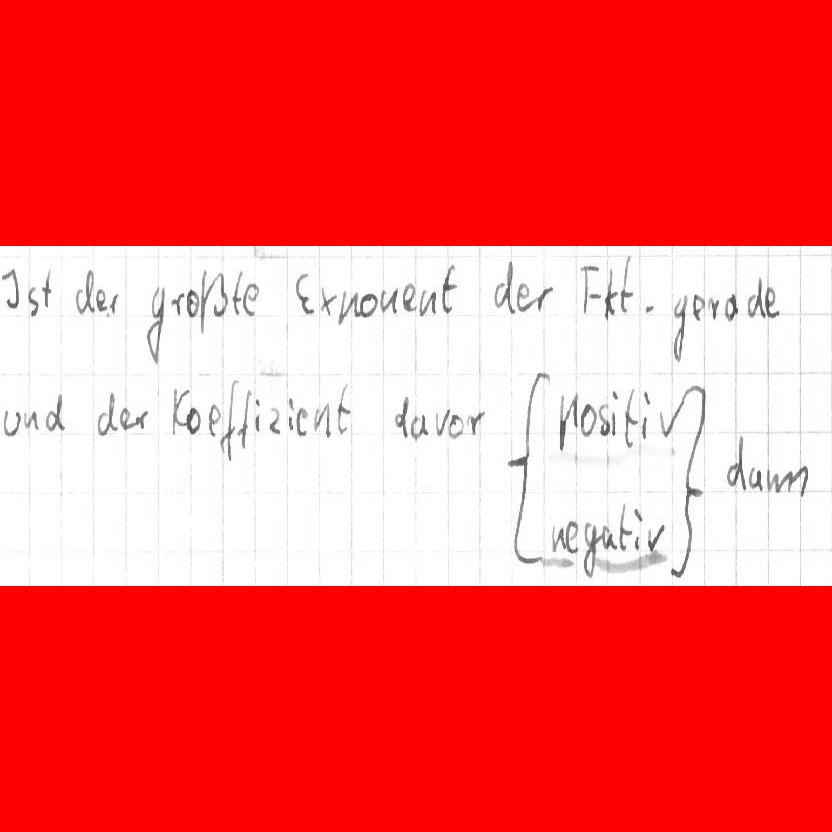 Ist der großte Exponent der Fkt. gerade
und der Koeffizient davor { positiv } dann
negativ